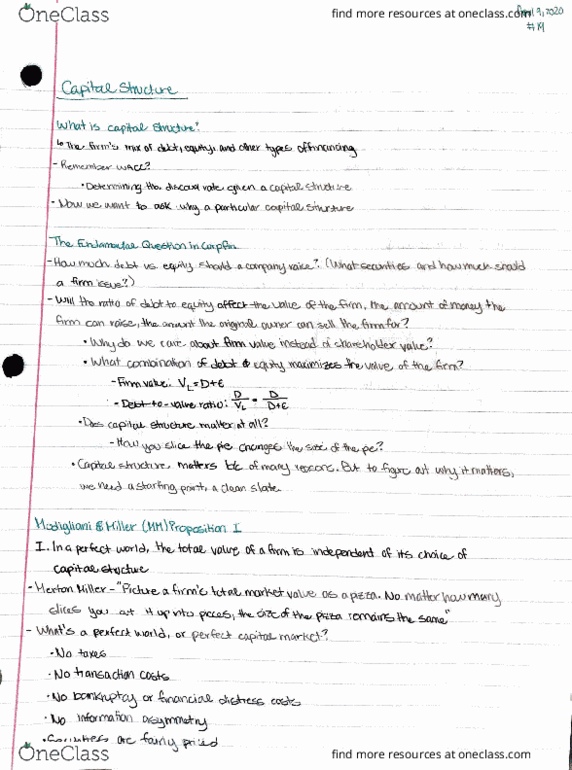 OneClass
find more resources at oneclass.com
April 9, 2020
#19
Capital Structure
What is capital structure?
↳ The firm's mix of debt, equity, and other types of financing
- Remember WACC?
• Determining the discount rate given a capital structure
- Now we want to ask why a particular capital structure
The Fundamental Question in Corpfin
- How much debt vs equity should a company raise? (What securities and how much should
a firm issue?)
- Will the ratio of debt to equity affect the value of the firm, the amount of money the
firm can raise, the amount the original owner can sell the firm for?
• Why do we care about firm value instead of shareholder value?
• What combination of debt & equity maximizes the value of the firm?
- Firm value: V_L = D+E
- Debt-to-value ratio: D/V_L = D/D+E
• Does capital structure matter at all?
- How you slice the pie changes the size of the pie?
• Capital structure matters b/c of many reasons. But to figure out why it matters,
we need a starting point, a clean slate.
Modigliani & Miller (MM) Proposition I
I. In a perfect world, the total value of a firm is independent of its choice of
capital structure
- Merton Miller - "Picture a firm's total market value as a pizza. No matter how many
slices you cut it up into pieces, the size of the pizza remains the same"
- What's a perfect world, or perfect capital market?
• No taxes
• No transaction costs
• No bankruptcy or financial distress costs
• No information asymmetry
• Securities are fairly priced
OneClass
find more resources at oneclass.com